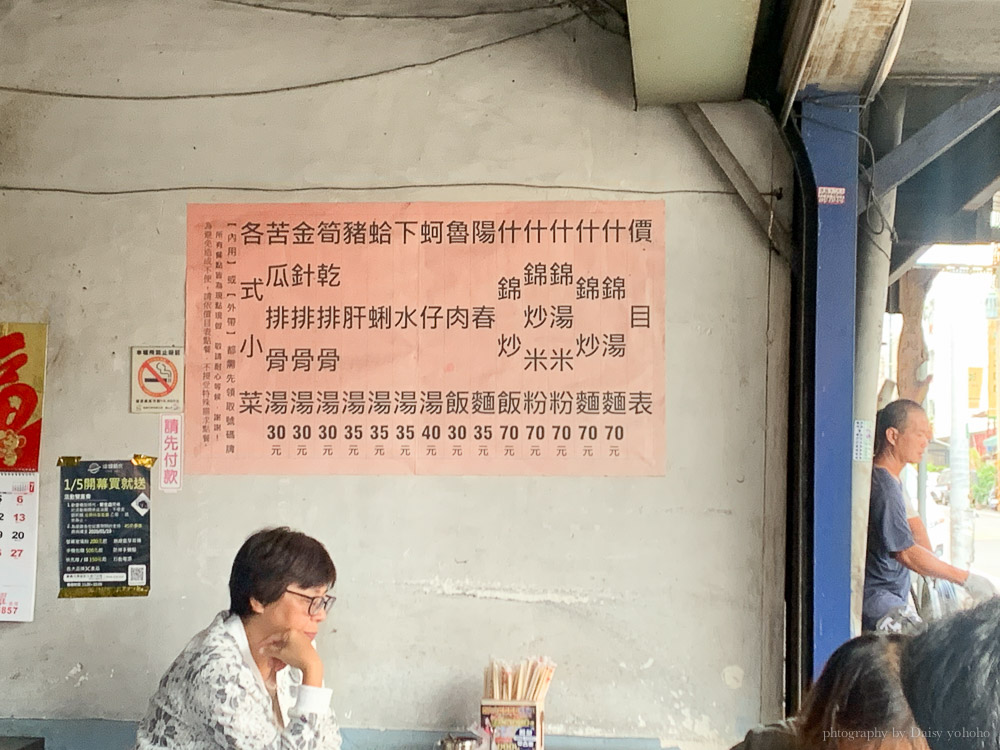 價目表
什錦湯麵 70元
什錦炒麵 70元
什錦湯米粉 70元
什錦炒米粉 70元
什錦炒飯 70元
陽春麵 35元
魯肉飯 30元
蚵仔湯 40元
下水湯 35元
蛤蜊湯 35元
豬肝湯 35元
筍乾排骨湯 30元
金針排骨湯 30元
苦瓜排骨湯 30元
各式小菜
【內用】或【外帶】都需先領取號碼牌
所有餐點皆為現點現做 敬請耐心等候 謝謝!
為避免造成不便,請依價目表點餐,不接受特殊要求點餐。
請先付款
1/5開幕買就送
6
13
19 20
27
857
photography by Daisy yohoho